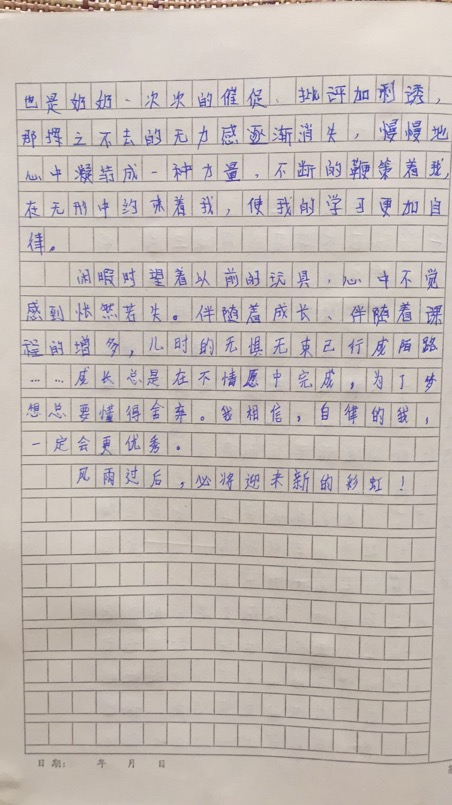 也是奶奶一次次的催促、批评加利诱，
那挥之不去的无力感逐渐消失，慢慢地
心中凝结成一种力量，不断的鞭策着我，
在无形中约束着我，使我的学习更加自
律。
闲暇时望着以前的玩具，心中不觉
感到怅然若失。伴随着成长、伴随着课
程的增多，儿时的无惧无束已行成陌路
……成长总是在不情愿中完成，为了梦
想总要懂得舍弃。我相信，自律的我，
一定会更优秀。
风雨过后，必将迎来新的彩虹！
日期： 年 月 日